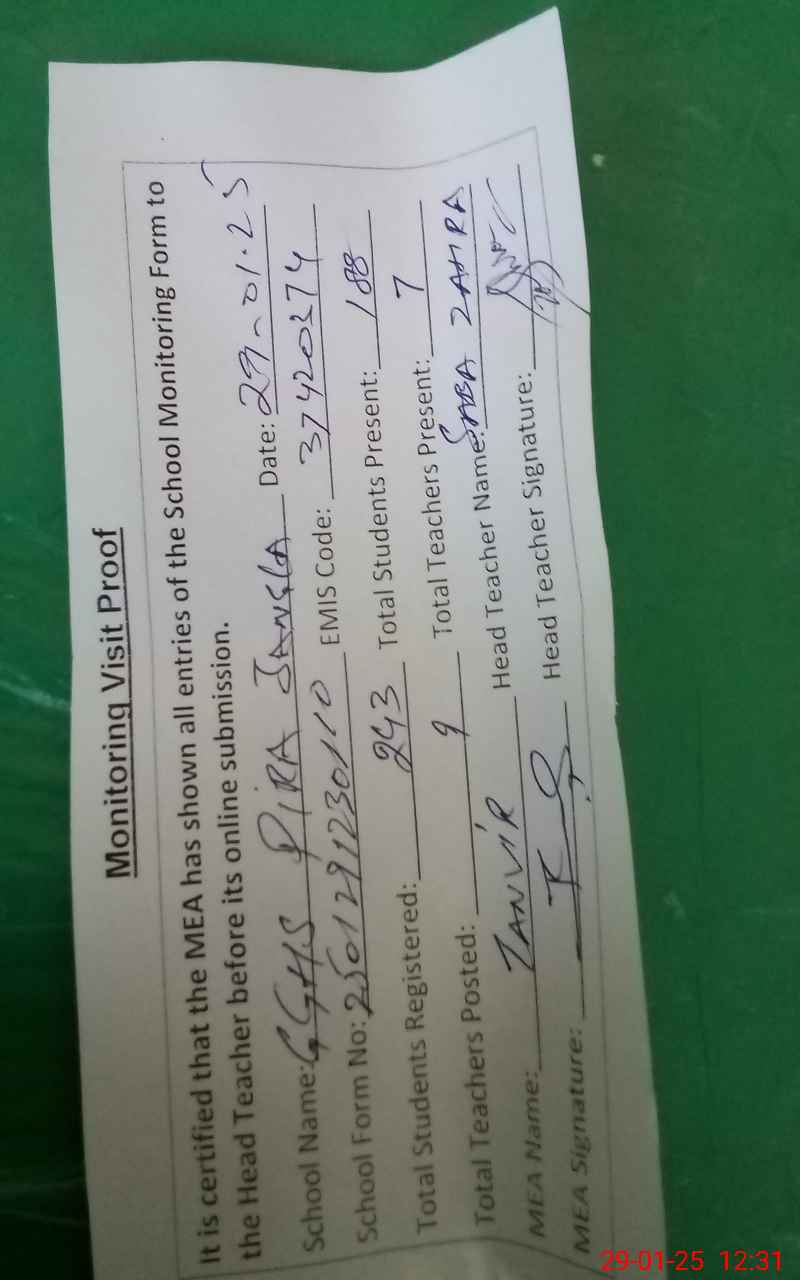 Monitoring Visit Proof
It is certified that the MEA has shown all entries of the School Monitoring Form to
the Head Teacher before its online submission.
School Name: GGHS PIRA JANGLA Date: 29-01-25
School Form No: 2501291230110 EMIS Code: 37420374
Total Students Registered: 243 Total Students Present: 188
Total Teachers Posted: 9 Total Teachers Present: 7
MEA Name: TANVIR Head Teacher Name: SABA ZAHRA
MEA Signature: Head Teacher Signature:
29-01-25 12:31